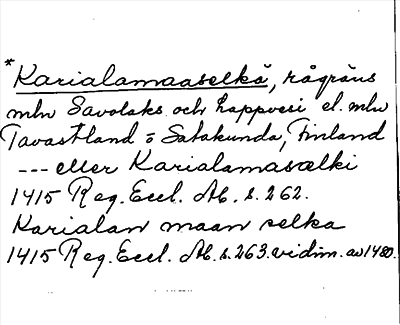 *Karialamaaselkä, rågräns
mln Savolaks och Lappvesi el. mln
Tavastland o Satakunda, Finland
--- eller Karialamasælki
1415 Reg. Eccl. Ab. s. 262.
Karialan maan selka
1415 Reg. Eccl. Ab. s. 263. vidim. av 1480.